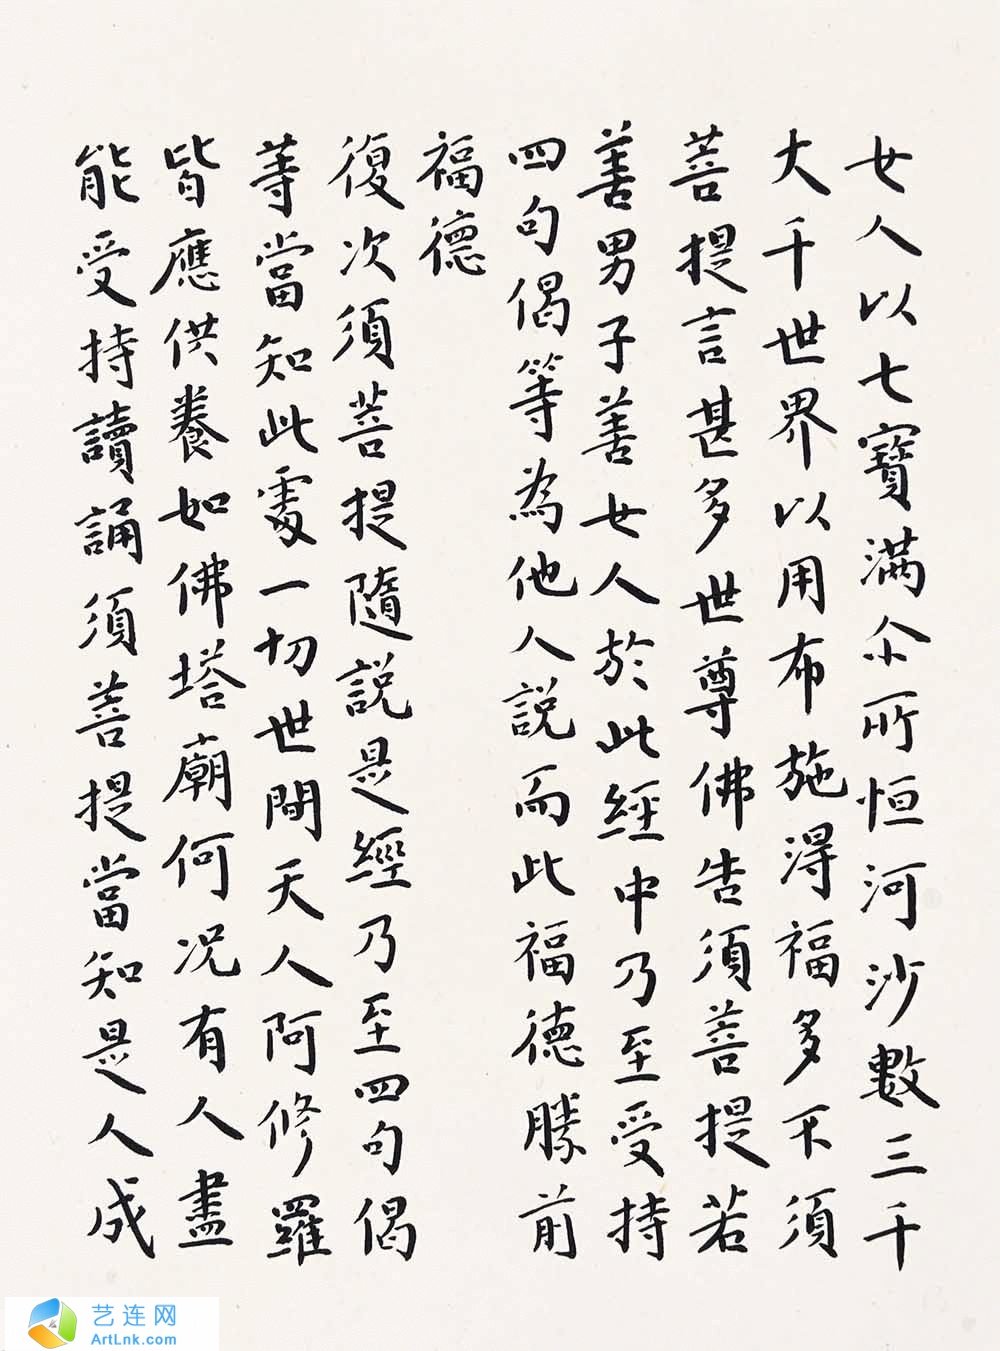 女人以七寶满尒所恒河沙數三千
大千世界以用布施得福多不須
菩提言甚多世尊佛告須菩提若
善男子善女人於此經中乃至受持
四句偈等為他人説而此福德勝前
福德
復次須菩提隨説是經乃至四句偈
等當知此處一切世間天人阿修羅
皆應供養如佛塔廟何况有人盡
能受持讀誦須菩提當知是人成
艺连网
ArtLnk.com